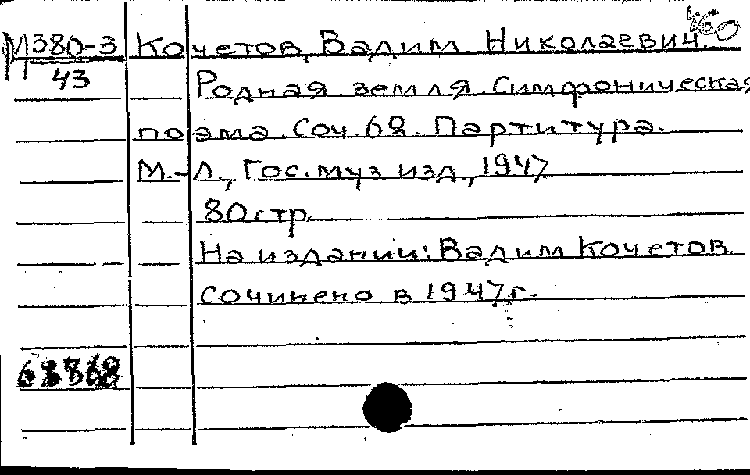 460
М380-3 Кочетов, Вадим Николаевич.
43
Родная земля. Симфоническая
поэма. Соч. 68. Партитура.
М.-Л., Гос. муз. изд., 1947
80 стр.
На издании: Вадим Кочетов
Сочинено в 1947 г.